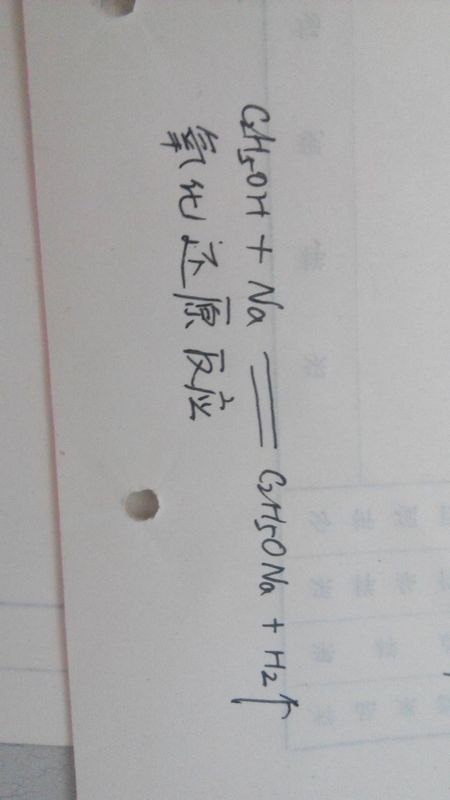 C₂H₅OH + Na == C₂H₅ONa + H₂↑
氧化还原反应